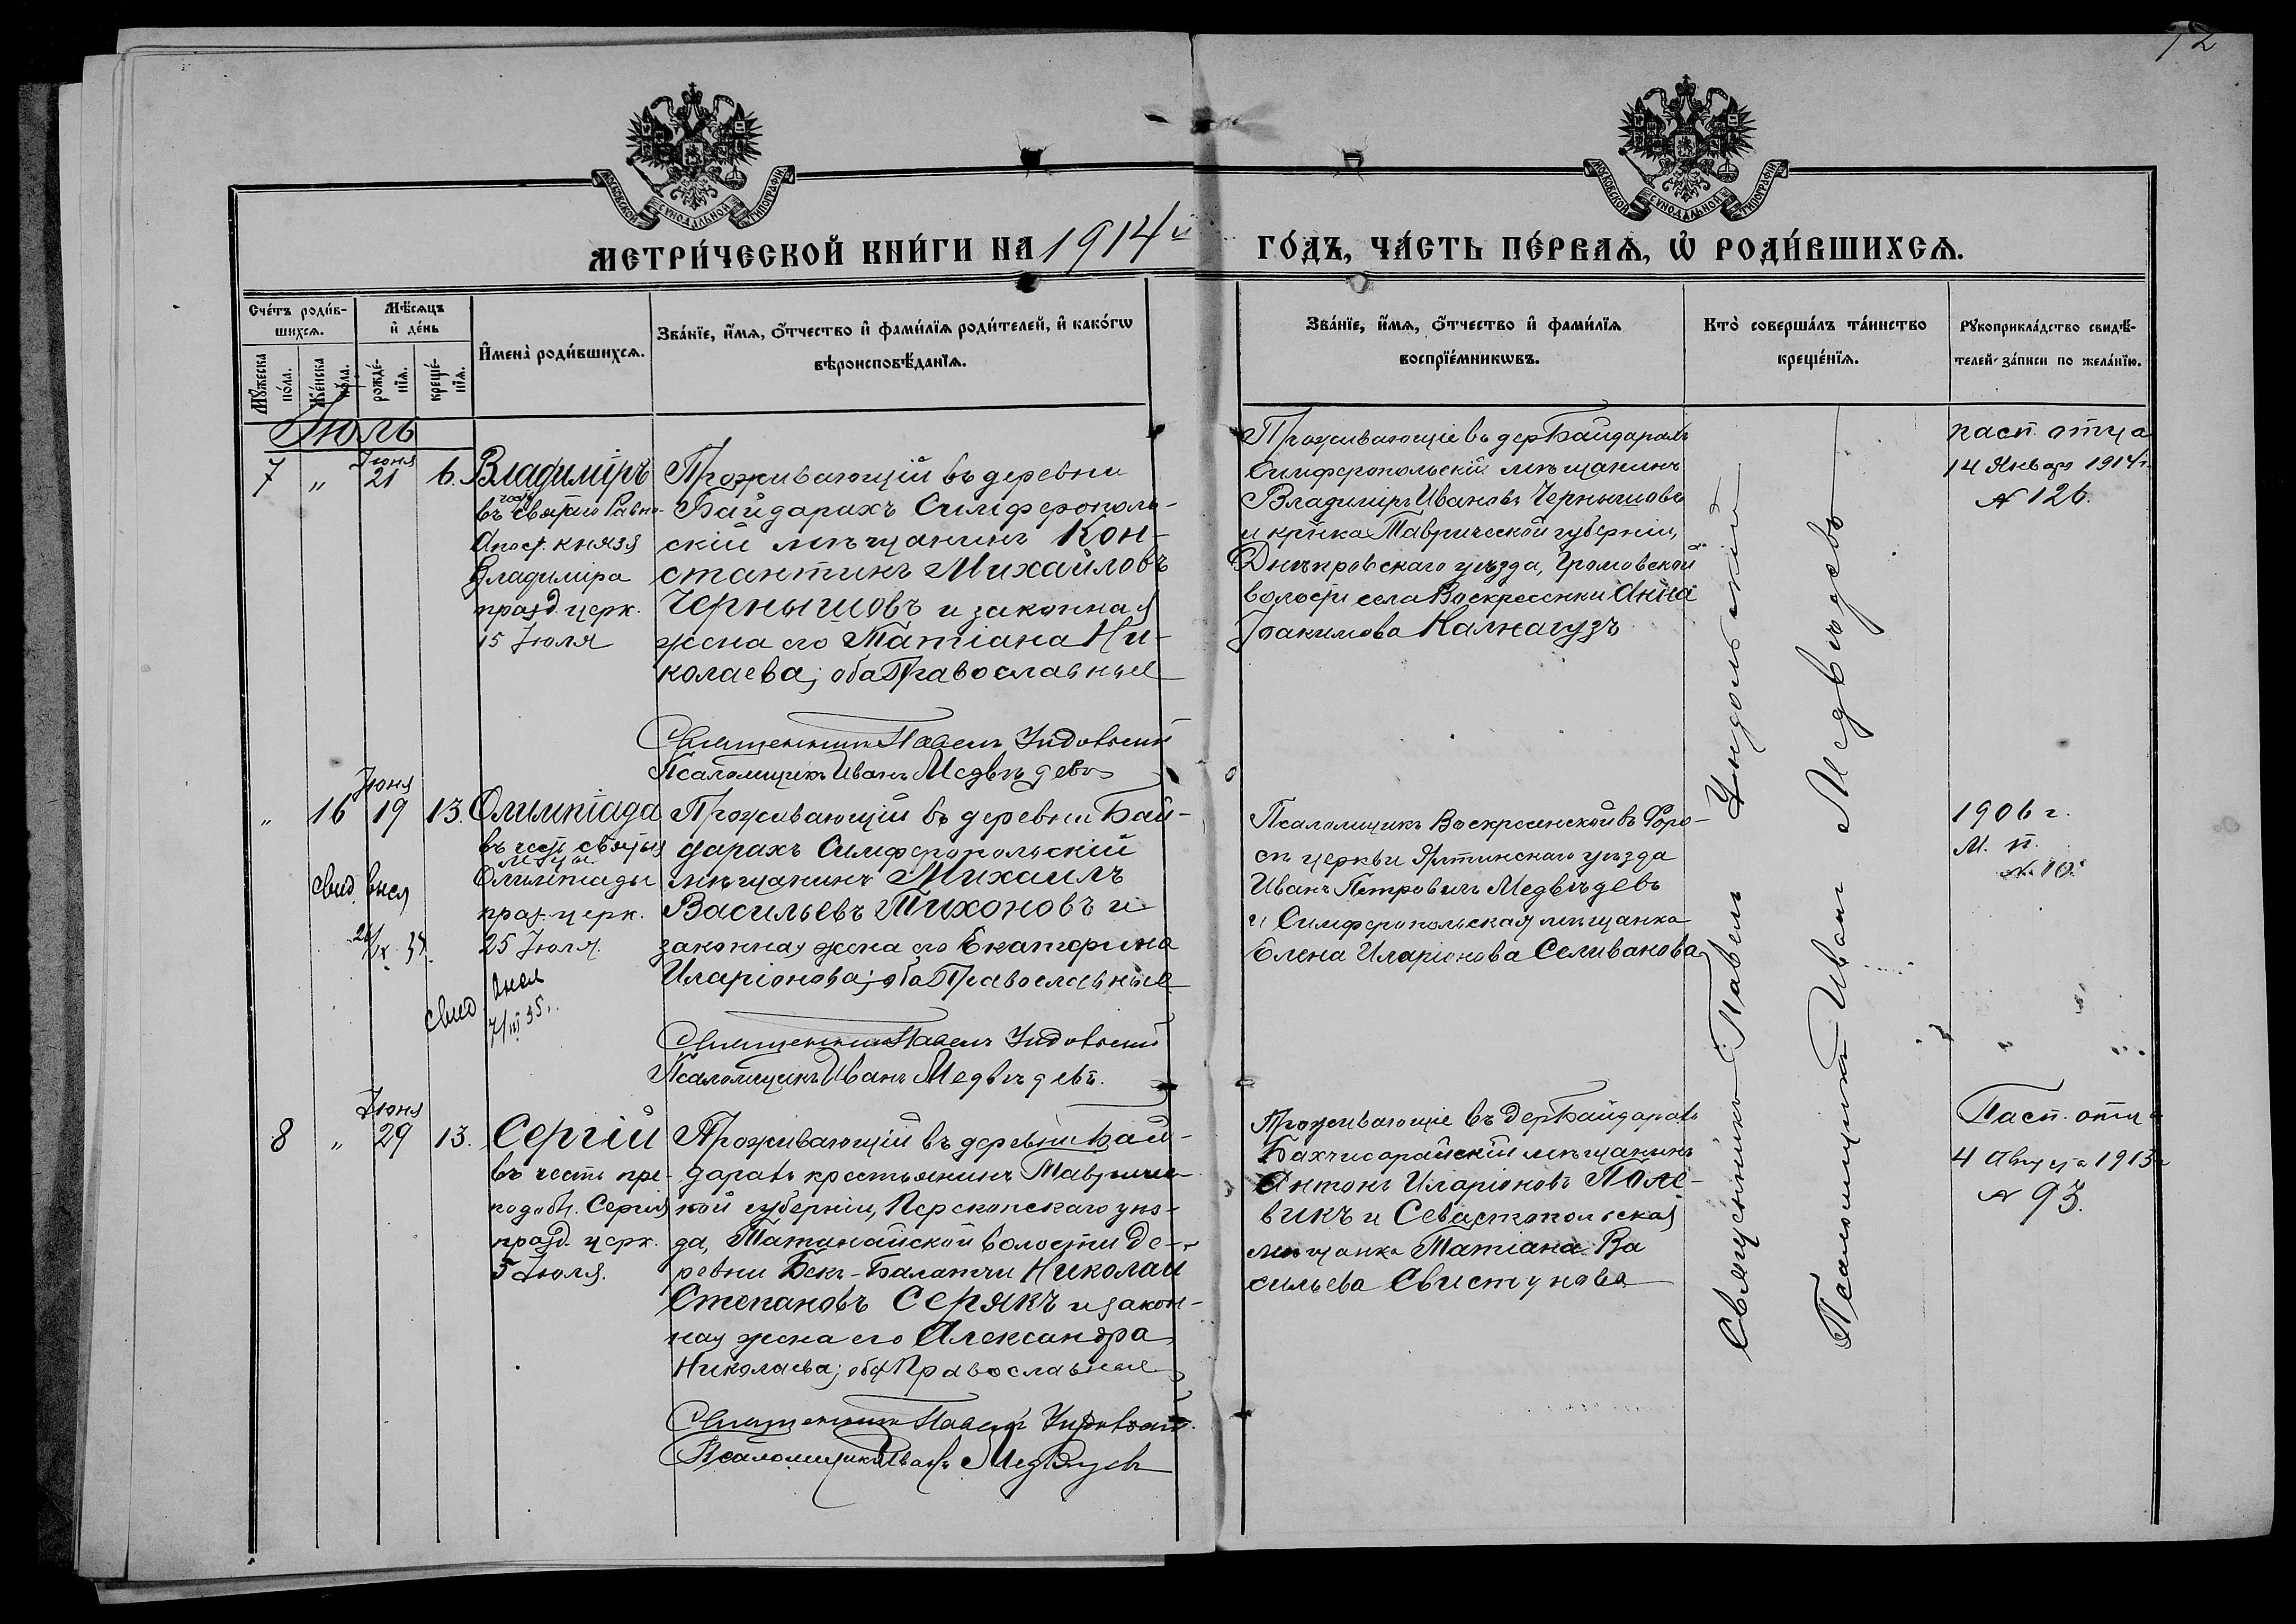 12
МОСКОВСКОЙ СѴНОДАЛЬНОЙ ТИПОГРАФІИ
МОСКОВСКОЙ СѴНОДАЛЬНОЙ ТИПОГРАФІИ
МЕТРИ́ЧЕСКОЙ КНИ́ГИ НА 1914й ГО́ДЪ, ЧА́СТЬ ПЕ́РВАѦ, Ѡ҆ РОДИ́ВШИХСѦ.
Сче́тъ роди́в-
шихсѧ.
Мꙋ́жеска по́ла.
Же́нска по́ла.
Мѣ́сѧцъ
и҆ де́нь
рожде́-
нїѧ.
креще́-
нїѧ.
И҆мена̀ роди́вшихсѧ.
Зва́нїе, и҆́мѧ, ѻ҆́тчество и҆ фами́лїѧ роди́телей, и҆ како́гѡ
вѣроисповѣ́данїѧ.
Зва́нїе, и҆́мѧ, ѻ҆́тчество и҆ фами́лїѧ
воспрїе́мникѡвъ.
Кто̀ соверша́лъ та́инство
креще́нїѧ.
Рꙋкоприкла́дство свидѣ́-
телей за́писи по жела́нїю.
Іюль
7 " Іюня 21 6.
Владиміръ
въ честь святаго Равно-
Апост. князя
Владиміра
празд. церк.
15 Іюля
Проживающій въ деревни
Байдарахъ Симферополь-
скій мѣщанинъ Кон-
стантинъ Михайловъ
Чернышовъ и законная
жена его Татіана Ни-
колаева; оба Православные
Священникъ Павелъ Ундольскій
Псаломщикъ Иванъ Медвѣдевъ
Проживающіе въ дер Байдарахъ
Симферопольскій мѣщанинъ
Владиміръ Ивановъ Чернышовъ
и кр-ка Таврической губерніи,
Днѣпровскаго уѣзда, Громовской
волости села Воскресенки Анна
Іоакимова Калнагузъ
пасп. отца
14 Январ 1914 г.
№ 126.
" 16 Іюня 19 13.
Олимпіада
въ честь святыя
м-цы
Олимпіады
праз. церк.
25 Іюля.
Проживающій въ деревни Бай-
дарахъ Симферопольскій
мѣщанинъ Михаилъ
Васильевъ Тихоновъ и
законная жена его Екатерина
Иларіонова; оба Православные
Священникъ Павелъ Ундольскій
Псаломщикъ Иванъ Медвѣдевъ.
Псаломщикъ Воскресенской въ Форо-
сѣ церкви Ялтинскаго уѣзда
Иванъ Петровичъ Медвѣдевъ
и Симферопольская мѣщанка
Елена Иларіонова Селиванова
1906 г.
М. п.
№ 10.
свид
7/III 35.
8 " Іюня 29 13.
Сергій
въ честь пре-
подобн. Сергія
празд. церк.
5 Іюля.
Проживающій въ деревни Бай-
дарахъ крестьянинъ Тавричес-
кой губерніи, Перекопскаго уѣз-
да, Татанайской волости де-
ревни Бекъ-Балатчи Николай
Степановъ Серякъ и закон-
ная жена его Александра
Николаева; оба Православные
Священникъ Павелъ Ундольскій.
Псаломщикъ Иванъ Медвѣдевъ
Проживающіе въ дер Байдарахъ
Бахчисарайскій мѣщанинъ
Антонъ Иларіоновъ Поле-
викъ и Севастопольская
мѣщанка Татіана Ва
сильева Свистунова
Пасп. отца
4 Августа 1913 г
№ 93.
Священникъ Павелъ Ундольскій
Псаломщикъ Иванъ Медвѣдевъ